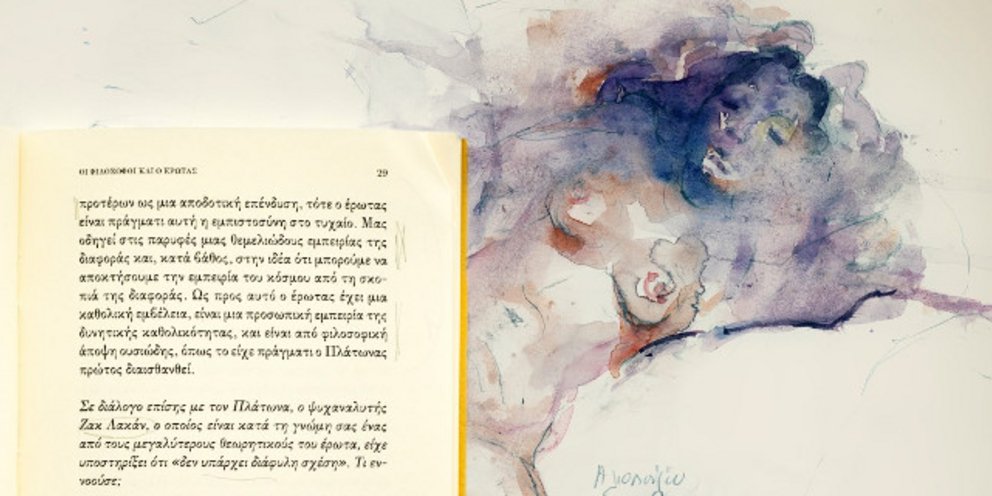 ΟΙ ΦΙΛΟΣΟΦΟΙ ΚΑΙ Ο ΕΡΩΤΑΣ 29
προτέρων ως μια αποδοτική επένδυση, τότε ο έρωτας
είναι πράγματι αυτή η εμπιστοσύνη στο τυχαίο. Μας
οδηγεί στις παρυφές μιας θεμελιώδους εμπειρίας της
διαφοράς και, κατά βάθος, στην ιδέα ότι μπορούμε να
αποκτήσουμε την εμπειρία του κόσμου από τη σκο-
πιά της διαφοράς. Ως προς αυτό ο έρωτας έχει μια
καθολική εμβέλεια, είναι μια προσωπική εμπειρία της
δυνητικής καθολικότητας, και είναι από φιλοσοφική
άποψη ουσιώδης, όπως το είχε πράγματι ο Πλάτωνας
πρώτος διαισθανθεί.
Σε διάλογο επίσης με τον Πλάτωνα, ο ψυχαναλυτής
Ζακ Λακάν, ο οποίος είναι κατά τη γνώμη σας ένας
από τους μεγαλύτερους θεωρητικούς του έρωτα, είχε
υποστηρίξει ότι «δεν υπάρχει διάφυλη σχέση». Τι εν-
νοούσε;